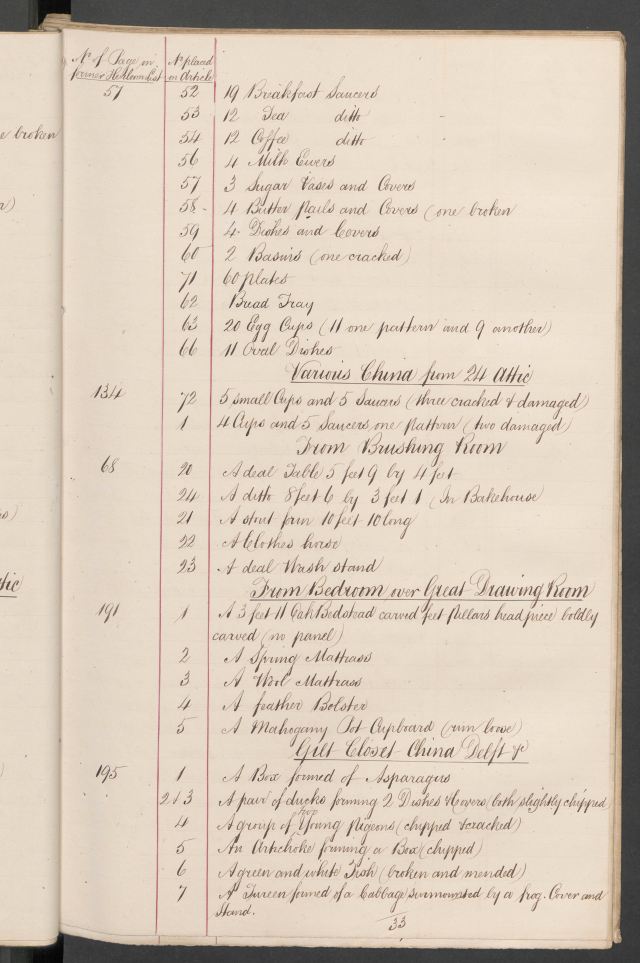 e broken
r)
s)
tic
)
No. of Page in No. placed
former Heirloom List on Article
51 52 19 Breakfast Saucers
53 12 Tea ditto
54 12 Coffee ditto
56 4 Milk Ewers
57 3 Sugar Vases and Covers
58 - 4 Butter Pails and Covers (one broken
59 4 Dishes and Covers
60 2 Basins (one cracked)
71 60 plates
62 Bread Tray
63 20 Egg Cups (11 one pattern and 9 another)
66 11 Oval Dishes
Various China from 24 Attic
134 72 5 small Cups and 5 Saucers (three cracked & damaged)
1 4 Cups and 5 Saucers one Pattern (two damaged)
From Brushing Room
68 20 A deal Table 5 feet 9 by 4 feet
24 A ditto 8 feet 6 by 3 feet 1 (In Bakehouse)
21 A stout form 10 feet 10 long
22 A Clothes horse
23 A deal Wash stand
From Bedroom over Great Drawing Room
191 1 A 3 feet 11 Oak Bedstead carved feet Pillars head piece boldly
carved (no panel)
2 A Spring Mattrass
3 A Wool Mattrass
4 A feather Bolster
5 A Mahogany Pot Cupboard (rim loose)
Gilt Closet China Delft &c
195 1 A Box formed of Asparagus
2 & 3 A pair of ducks forming 2 Dishes & Covers (both slightly chipped
4 A group of two Young Pigeons (chipped & cracked)
5 An Artichoke forming a Box (chipped)
6 A green and white Fish (broken and mended)
7 A Tureen formed of a Cabbage surmounted by a frog. Cover and
Stand.
33